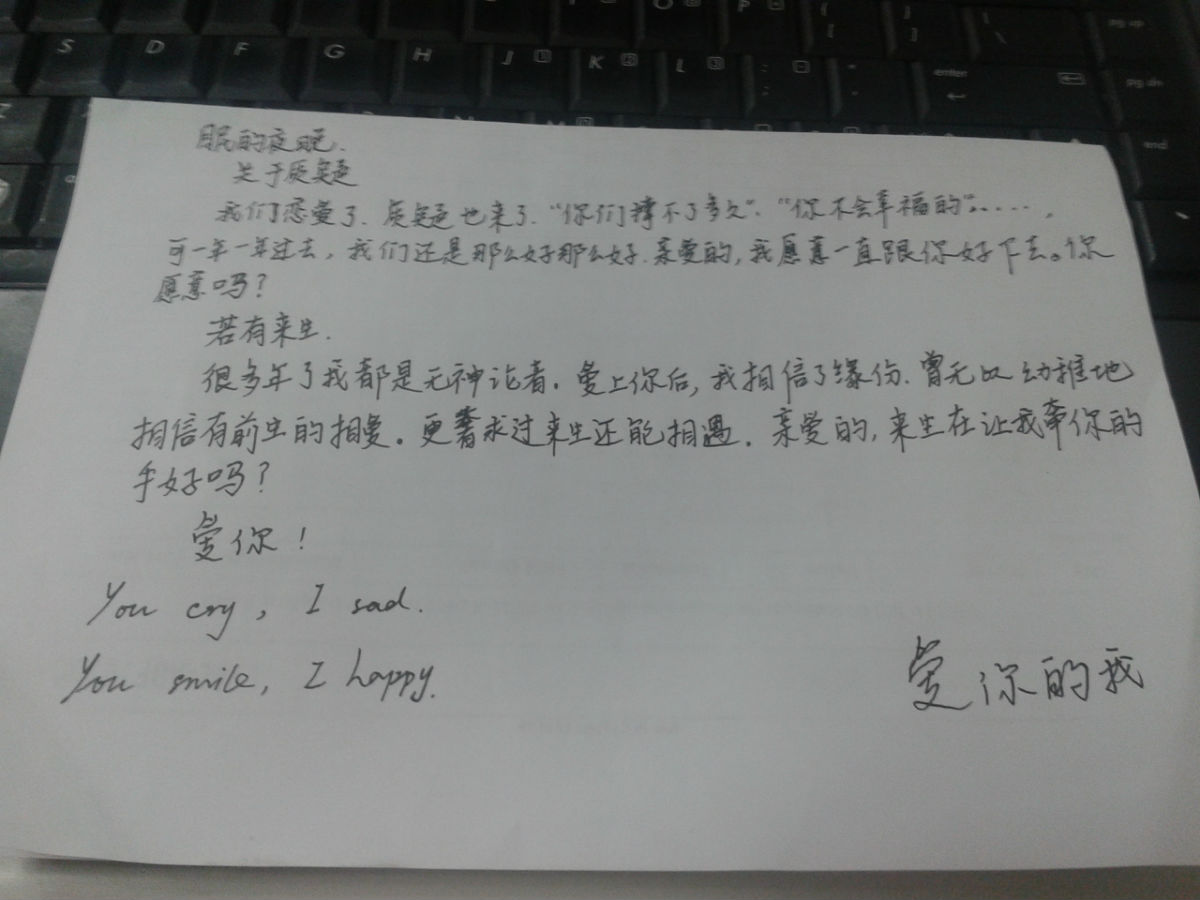 S D F G H J K L
enter
pg up
pg dn
end
眠的夜晚.
关于质疑
我们恋爱了.质疑也来了.“你们撑不了多久”.“你不会幸福的”......,
可一年一年过去,我们还是那么好那么好.亲爱的,我愿意一直跟你好下去。你
愿意吗?
若有来生.
很多年了我都是无神论者.爱上你后,我相信了缘份.曾无以幼稚地
相信有前生的相爱。更奢求过来生还能相遇.亲爱的,来生在让我牵你的
手好吗?
爱你!
You cry, I sad.
You smile, I happy.
爱你的我